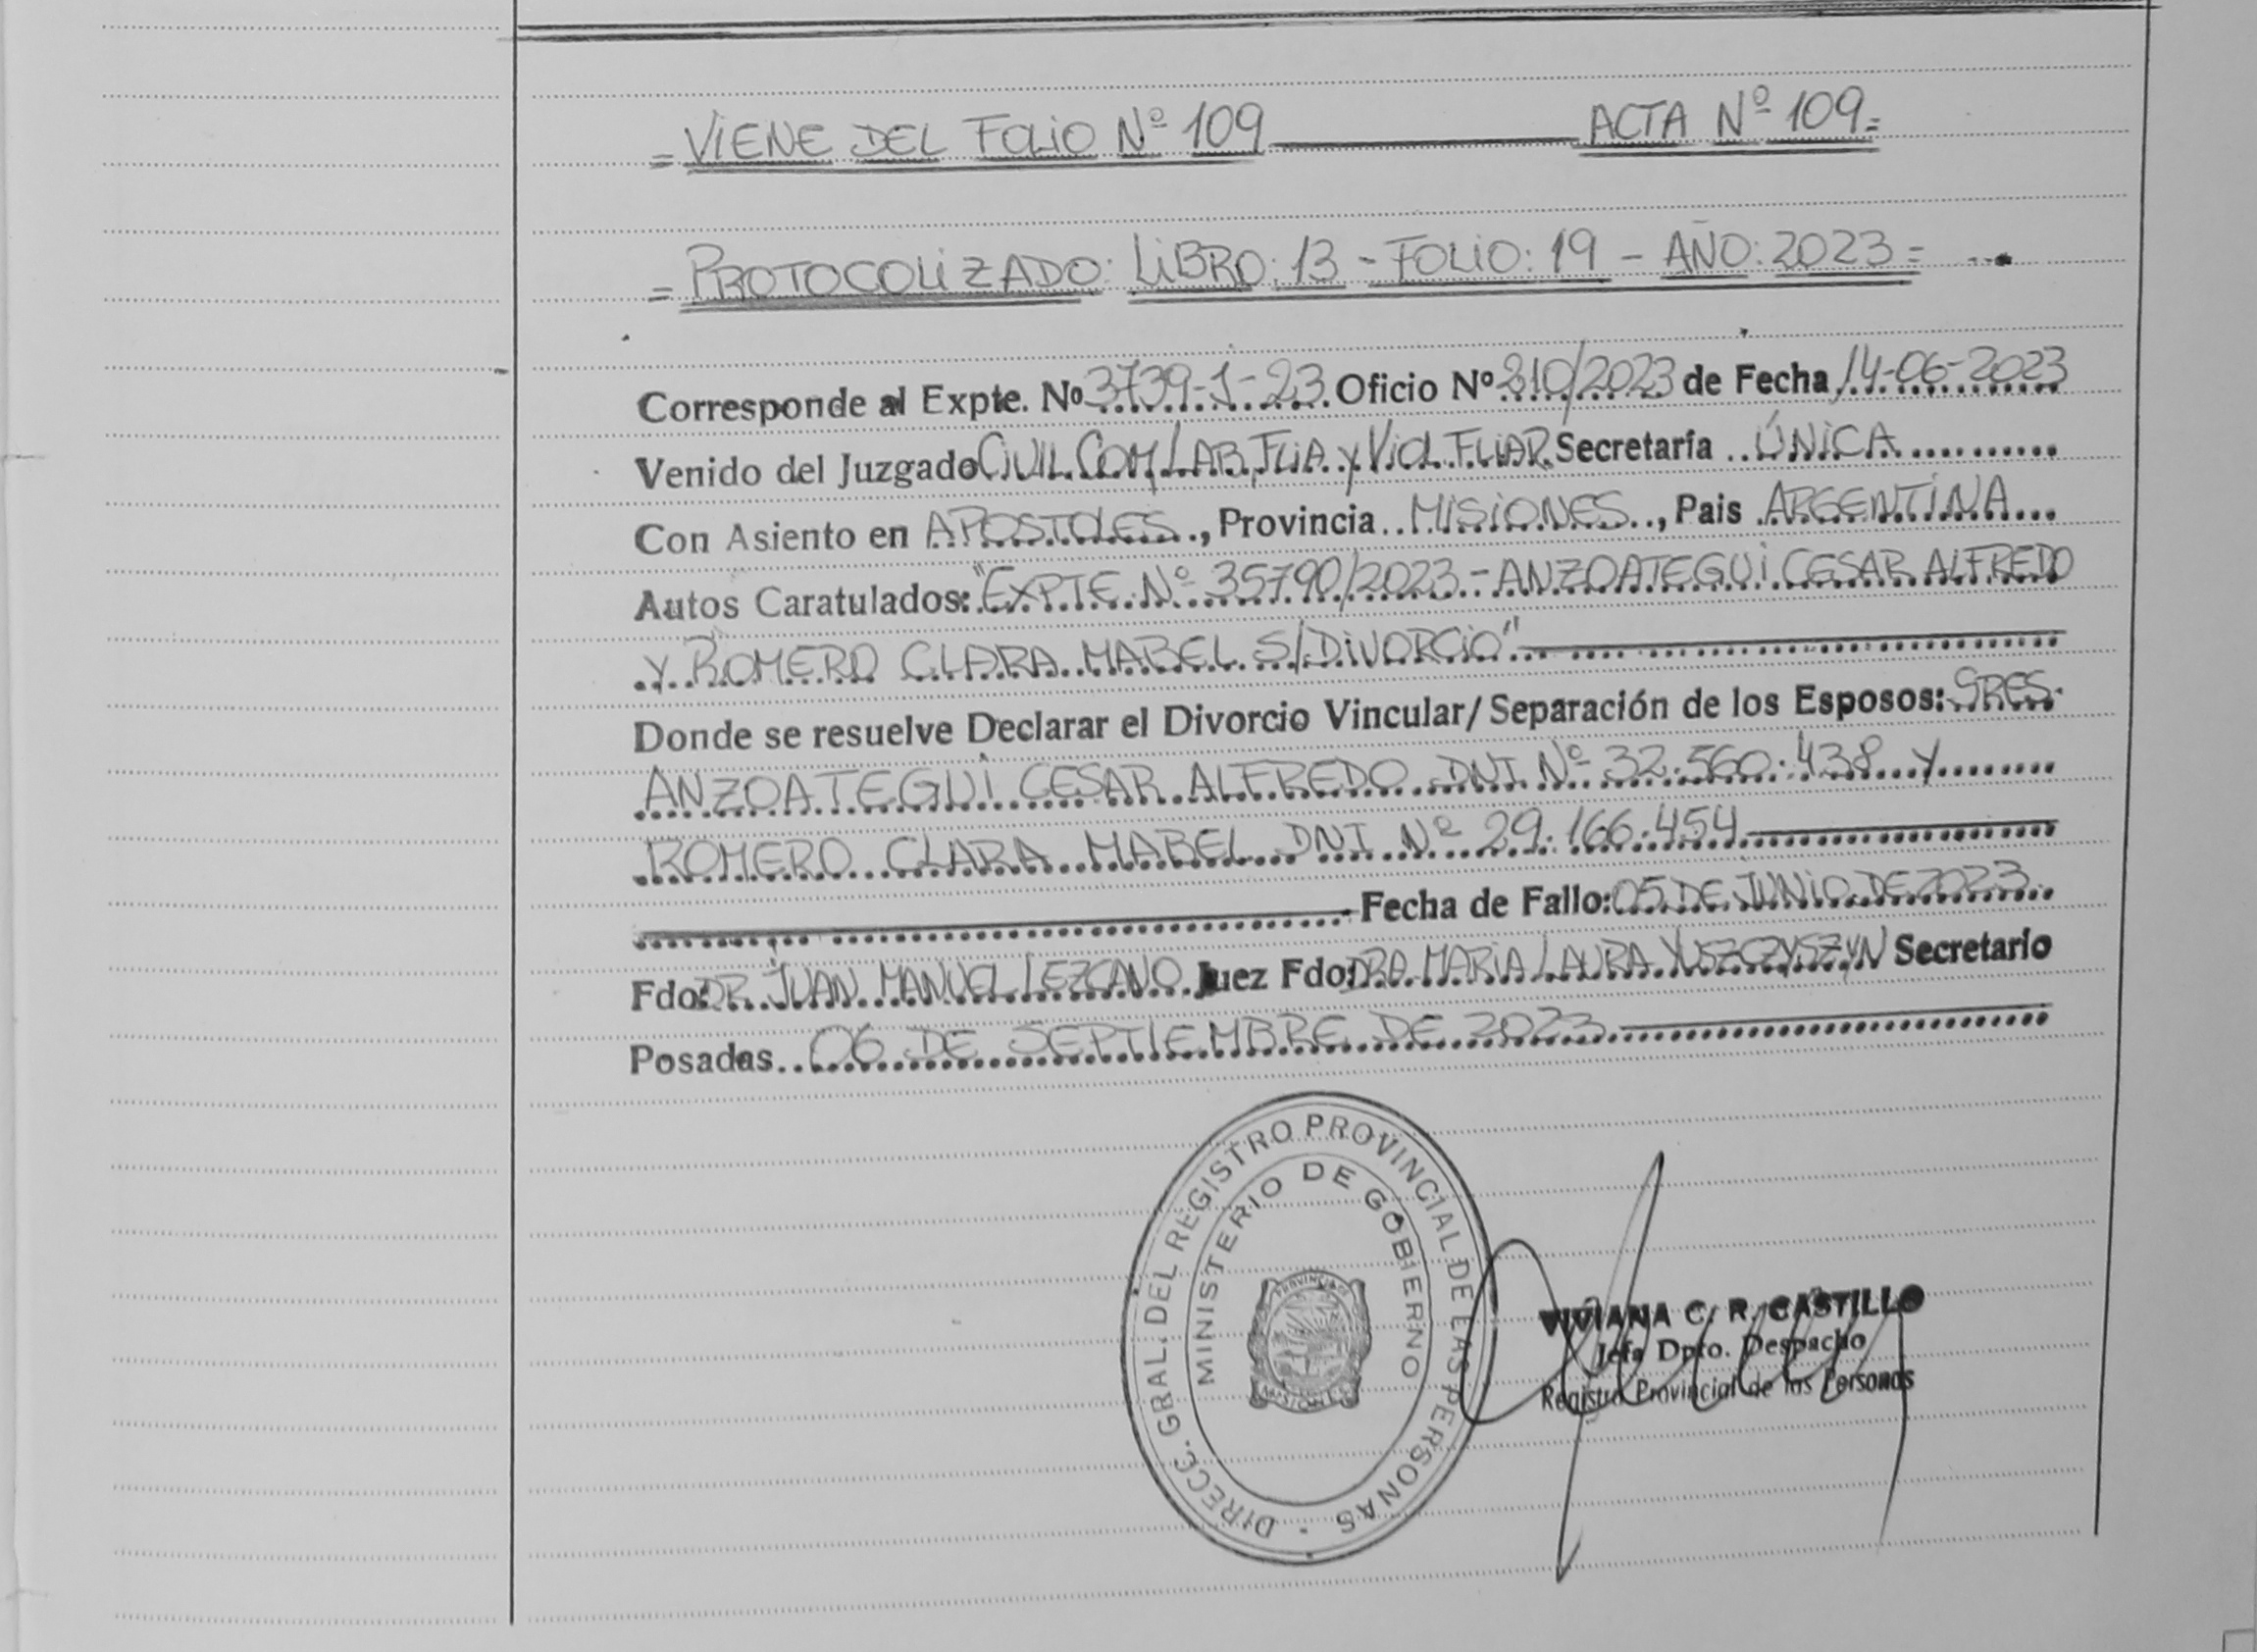 = VIENE DEL FOLIO Nº 109 ACTA Nº 109 =
= PROTOCOLIZADO: LIBRO: 13 - FOLIO: 19 - AÑO: 2023 =
Corresponde al Expte. Nº 3739-1-23 Oficio Nº 810/2023 de Fecha 14-06-2023
Venido del Juzgado CIVIL, COM, LAB, FLIA y VIOL. FLIAR. Secretaría ÚNICA
Con Asiento en APOSTOLES, Provincia MISIONES, Pais ARGENTINA
Autos Caratulados: "EXPTE. Nº 35790/2023 - ANZOATEGUI CESAR ALFREDO
Y ROMERO CLARA MABEL S/DIVORCIO"
Donde se resuelve Declarar el Divorcio Vincular/Separación de los Esposos: SRES.
ANZOATEGUI CESAR ALFREDO DNI Nº 32.560.438 Y
ROMERO CLARA MABEL DNI Nº 29.166.454
Fecha de Fallo: 05 DE JUNIO DE 2023
Fdo: DR. JUAN MANUEL LEZCANO Juez Fdo: DRA. MARIA LAURA YUSZCZYSZYN Secretario
Posadas 06 DE SEPTIEMBRE DE 2023
DIRECC. GRAL. DEL REGISTRO PROVINCIAL DE LAS PERSONAS
MINISTERIO DE GOBIERNO
PROVINCIA DE
MISIONES
VIVIANA C. R. CASTILLO
Jefa Dpto. Despacho
Registro Provincial de las Personas